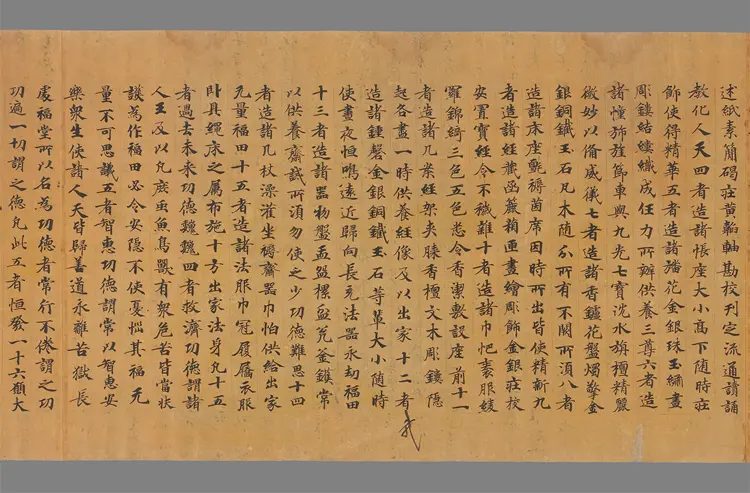 述紙素簡碼莊黃縚軸勘校刋定流通讀誦
教化人天四者造諸帳座大小高下随時莊
飾使得精華五者造諸旛花金銀珠玉繡畫
彫鏤結縷織成任力所辦供養三尊六者造
諸幢斾旌節車輿九光七寳沈水旃檀精麗
微妙以俻威儀七者造諸香鑪花盤燭擎金
銀銅鐵玉石凡木随分所有不闕所須八者
造諸床座氈褥茵席因時所出皆使精新九
者造諸經藏凾蘊箱匣畫繪彫飾金銀莊校
安置寳經令不穢雜十者造諸巾帊裹服綾
羅錦綺三色五色悉令香潔敷設座前十一
者造諸几案經架夾膝香檀文木彫鏤隱
起各盡一時供養經像及以出家十二者
造諸鍾磬金銀銅鐵玉石等軰大小随時
使晝夜恒鳴遠近歸向長充法器永劫福田
十三者造諸器物盤盂樏瓮釜鑊常
以供養齋誡所須勿使之少功德難思十四
者造諸几杖澡灌坐褥齋器巾怕供給出家
无量福田十五者造諸法服巾冠履屩衣服
卧具繩床之属布施十方出家法身凡十五
者過去未来功德巍巍四者救濟功德謂諸
人王及以凡庶虫魚鳥獸有衆危苦皆當扶
護為作福田必令安隱不使憂惱其福无
量不可思議五者智惠功德謂常以智惠安
樂衆生使諸人天皆歸善道永離苦獄長
處福堂所以名為功德者常行不倦謂之功
功遍一切謂之德凡此五者恒發一十六願大